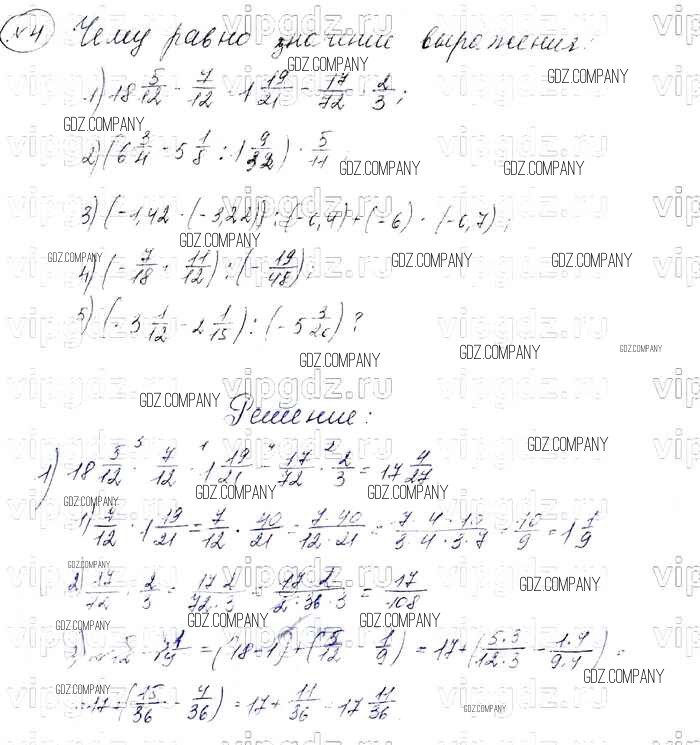 №4 Чему равно значение выражения:
1) 18 5/12 - 7/12 · 1 19/21 - 17/72 · 2/3;
2) (6 3/4 - 5 1/8 : 1 9/32) · 5/11
3) (-1,42 · (-3,22)) : (-0,4) + (-6) · (-0,7);
4) (-7/18 - 11/12) : (-19/48);
5) (-3 1/12 - 2 1/15) : (-5 3/20)?
Решение:
1) 18 5/12 - 7/12 · 1 19/21 - 17/72 · 2/3 = 17 4/27
1) 7/12 · 1 19/21 = 7/12 · 40/21 = 7·40/12·21 = 7·4·10/3·4·3·7 = 10/9 = 1 1/9
2) 17/72 · 2/3 = 17·2/72·3 = 17·2/2·36·3 = 17/108
= (18-1) + (5/12 - 1/9) = 17 + (5·3/12·3 - 1·4/9·4) =
= 17 + (15/36 - 4/36) = 17 + 11/36 = 17 11/36
vipgdz.ru
GDZ.COMPANY